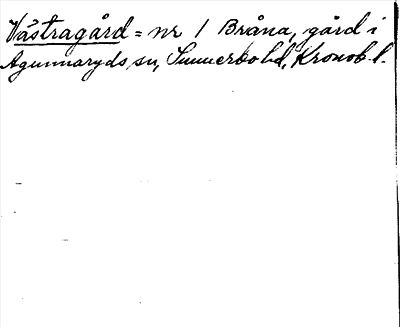 Västragård = nr 1 Bråna, gård i
Agunnaryds sn, Sunnerbo hd, Kronob. l.